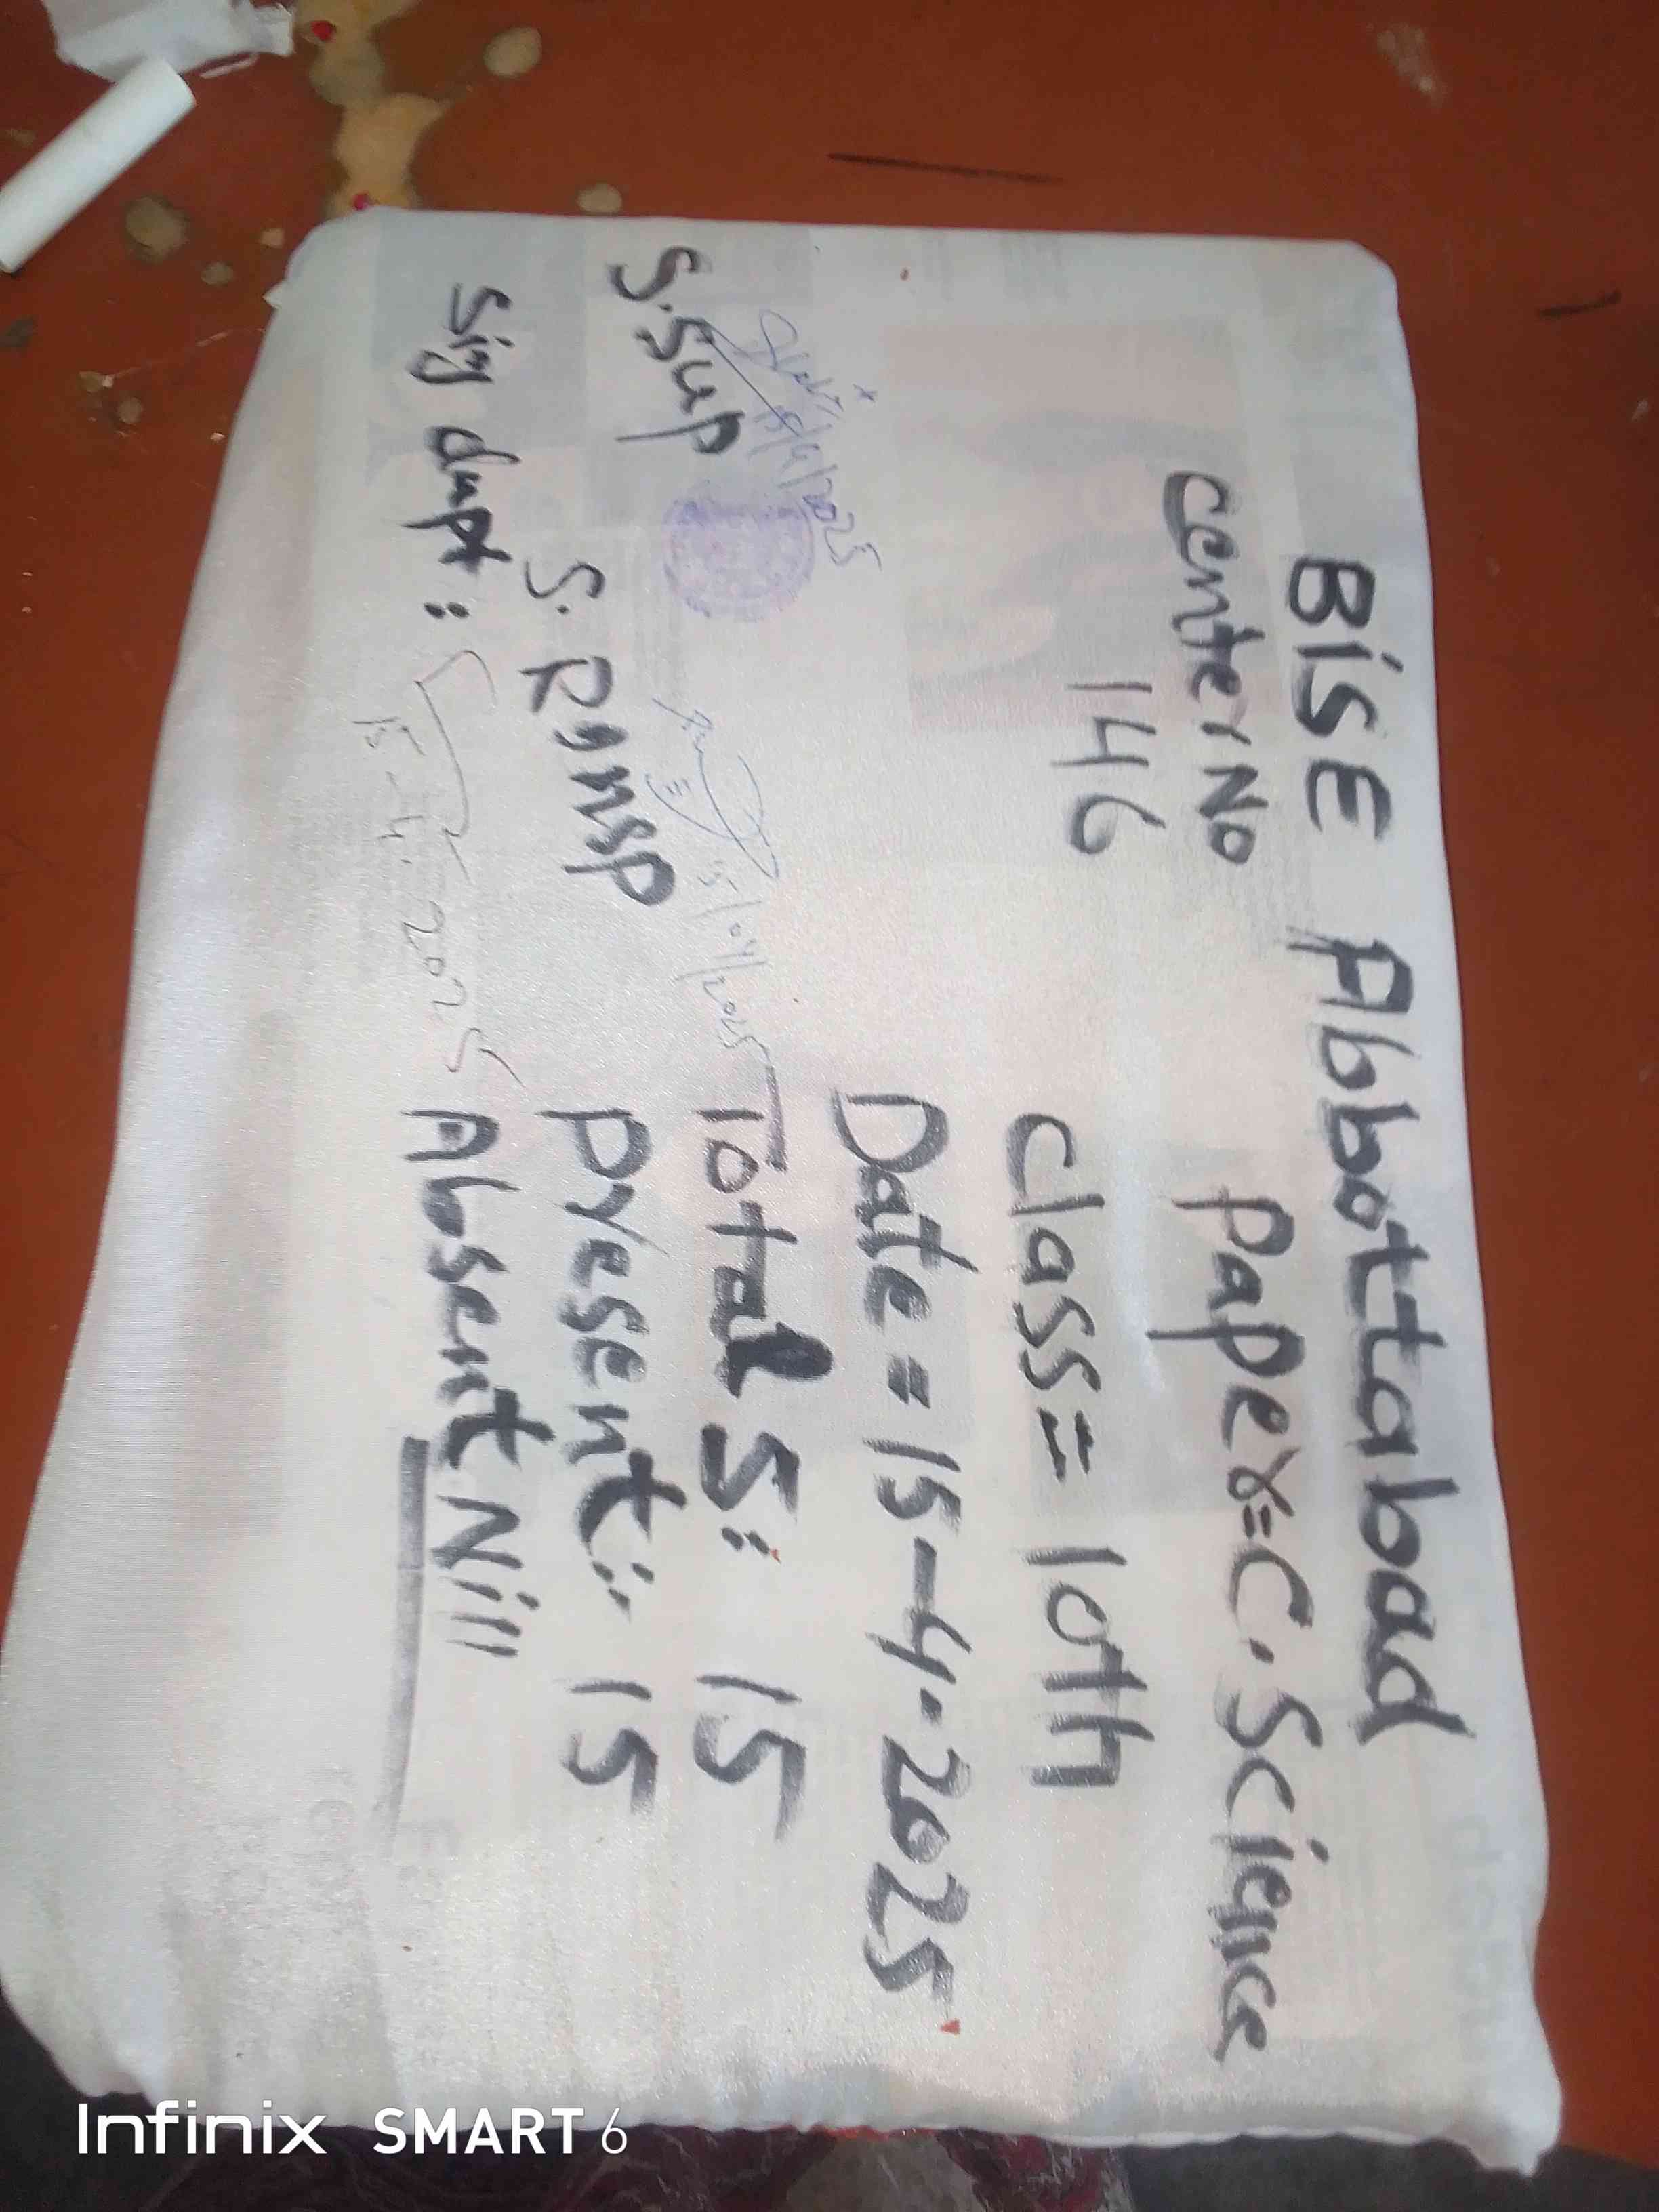 BISE Abbottabad
Center No
146
Paper=C.Science
Class= 10th
Date=15-4-2025
Total S: 15
Present: 15
Absent Nill
S.Sup
15/4/2025
S.R
15/04/2025
Sig dupt:
15-4-2025
Infinix SMART 6